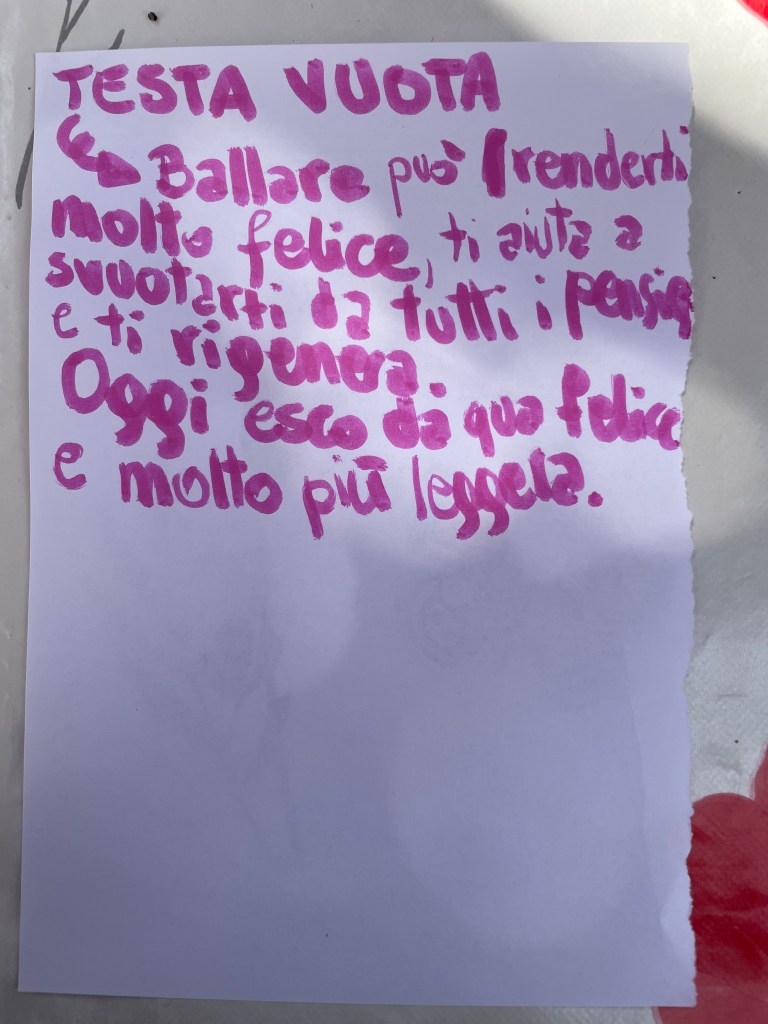 TESTA VUOTA
Ballare può renderti
molto felice, ti aiuta a
svuotarti da tutti i pensie
e ti rigenera.
Oggi esco da qua felice
e molto più leggera.